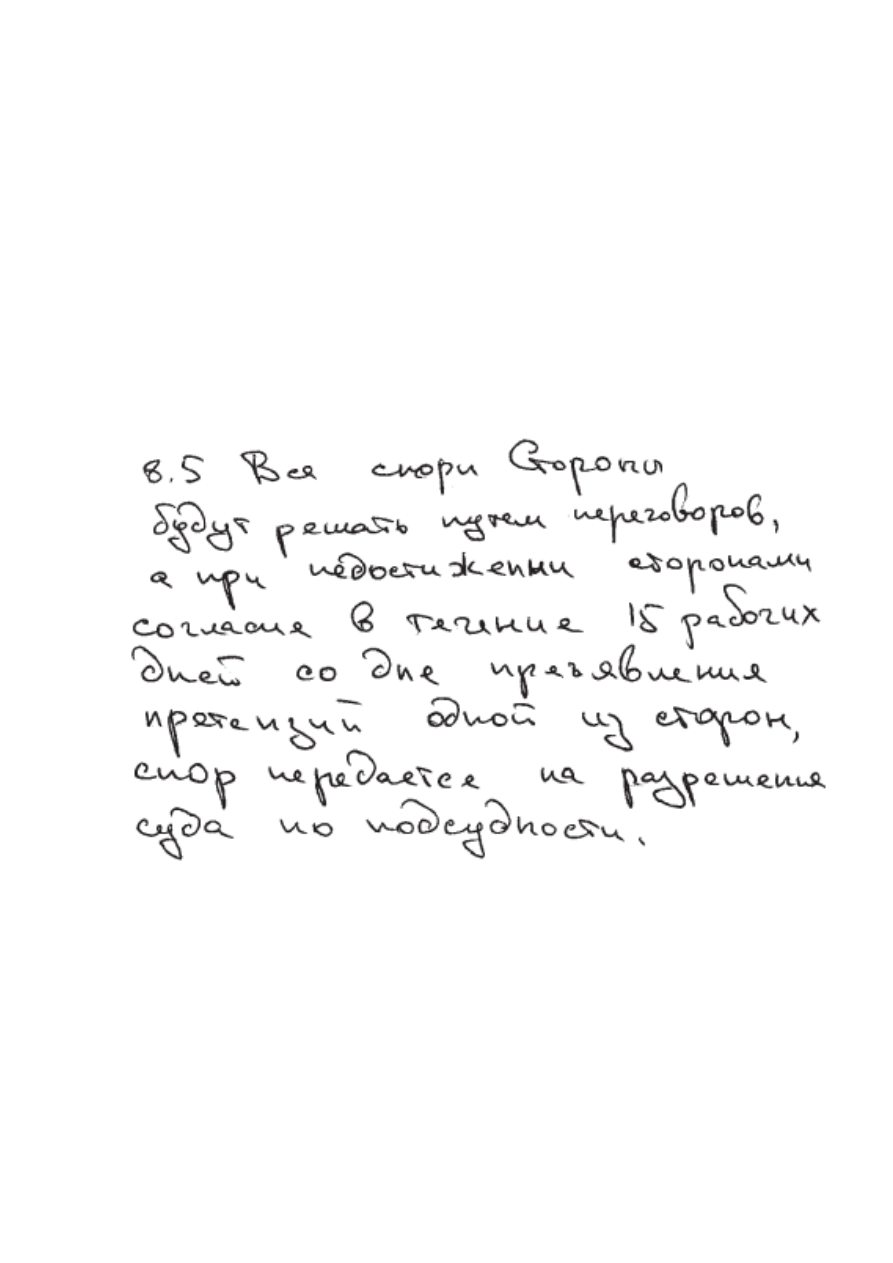 8.5 Все споры Стороны
будут решать путем переговоров,
а при недостижении сторонами
согласия в течение 15 рабочих
дней со дня предъявления
претензий одной из сторон,
спор передается на разрешение
суда по подсудности.